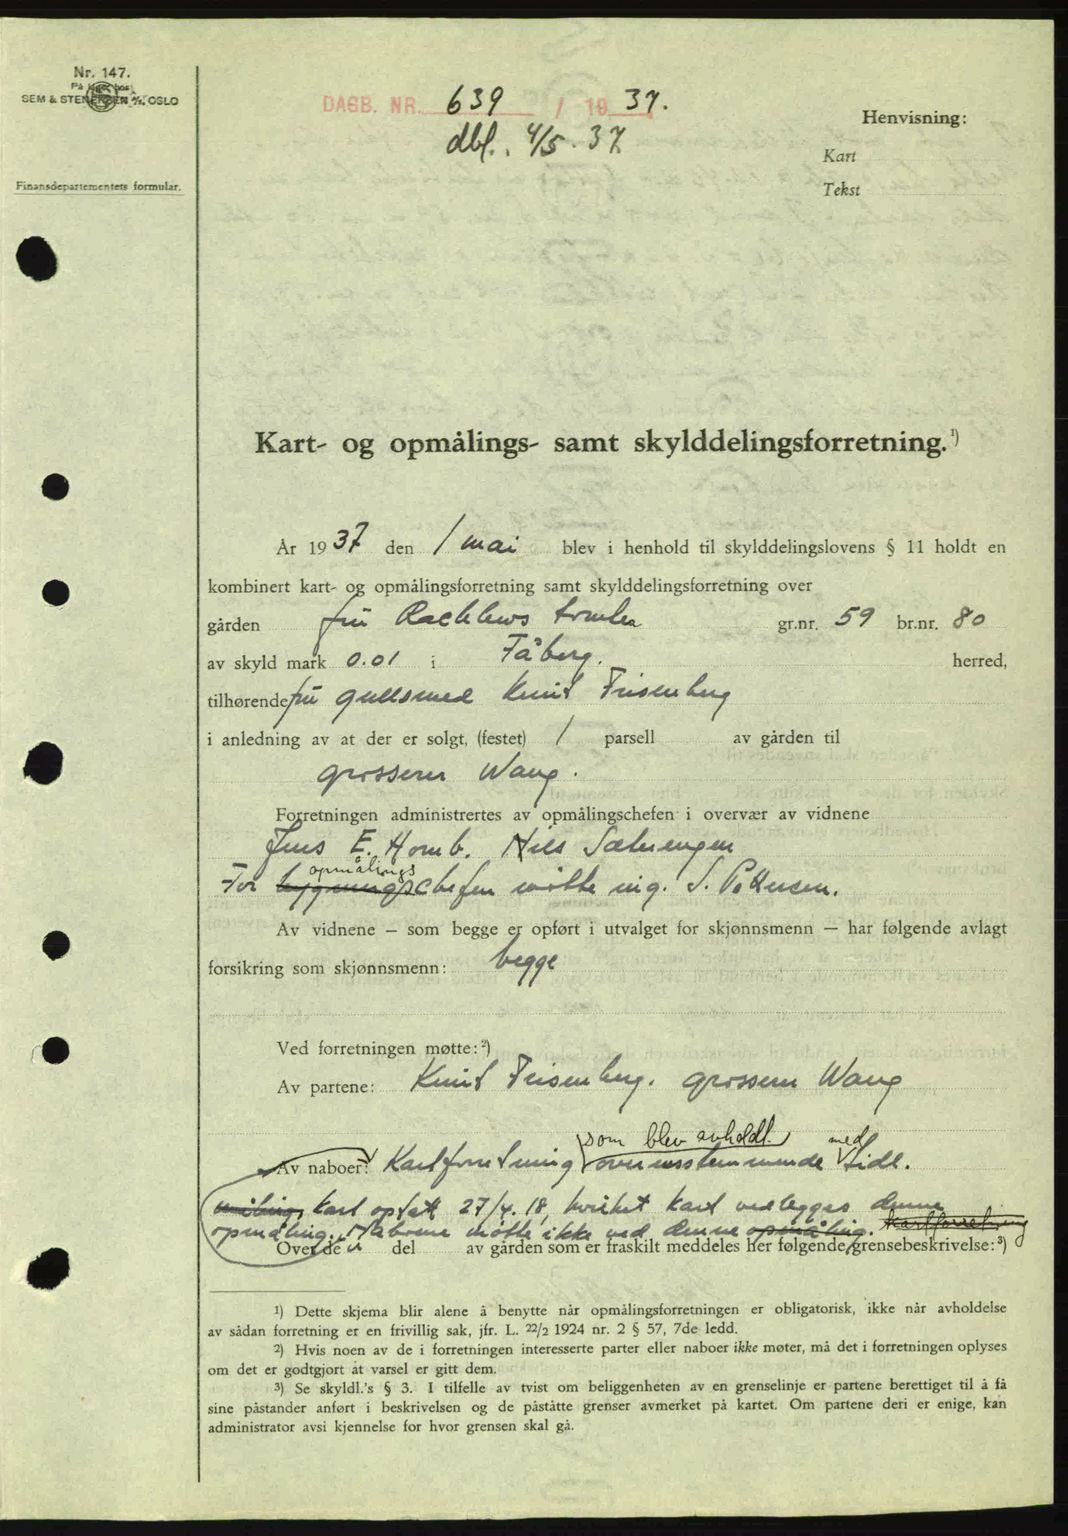 Nr. 147.
På lager hos
SEM & STENERSEN A/S. OSLO
Finansdepartementets formular.
DAGB. NR. 639 / 19 37.
dbf. 4/5. 37
Henvisning:
Kart
Tekst
Kart- og opmålings- samt skylddelingsforretning.¹)
År 1937 den 1 mai blev i henhold til skylddelingslovens § 11 holdt en
kombinert kart- og opmålingsforretning samt skylddelingsforretning over
gården fru tomten gr.nr. 59 br.nr. 80
av skyld mark 0.01 i Fåberg. herred,
tilhørende fru gullsmed Knut Frisenberg
i anledning av at der er solgt, (festet) 1 parsell av gården til
grosserer Wang.
Forretningen administrertes av opmålingschefen i overvær av vidnene
Jens E. Homb. Nils Sætrengen
opmålings
For bygningschefen møtte ing. S. Pettersen.
Av vidnene — som begge er opført i utvalget for skjønnsmenn — har følgende avlagt
forsikring som skjønnsmenn: begge
Ved forretningen møtte:²)
Av partene: Knut Frisenberg. grosserer Wang
som blev avholdt med
Av naboer: Kartforretning overensstemmende tidl.
kart optatt 27/4. 18, hvilket kart vedlegges denne
opmåling. Naboene møtte ikke ved denne opmåling. kartforretning
Over de n del av gården som er fraskilt meddeles her følgende grensebeskrivelse:³)
¹) Dette skjema blir alene å benytte når opmålingsforretningen er obligatorisk, ikke når avholdelse
av sådan forretning er en frivillig sak, jfr. L. 22/2 1924 nr. 2 § 57, 7de ledd.
²) Hvis noen av de i forretningen interesserte parter eller naboer ikke møter, må det i forretningen oplyses
om det er godtgjort at varsel er gitt dem.
³) Se skyldl.'s § 3. I tilfelle av tvist om beliggenheten av en grenselinje er partene berettiget til å få
sine påstander anført i beskrivelsen og de påståtte grenser avmerket på kartet. Om partene deri er enige, kan
administrator avsi kjennelse for hvor grensen skal gå.